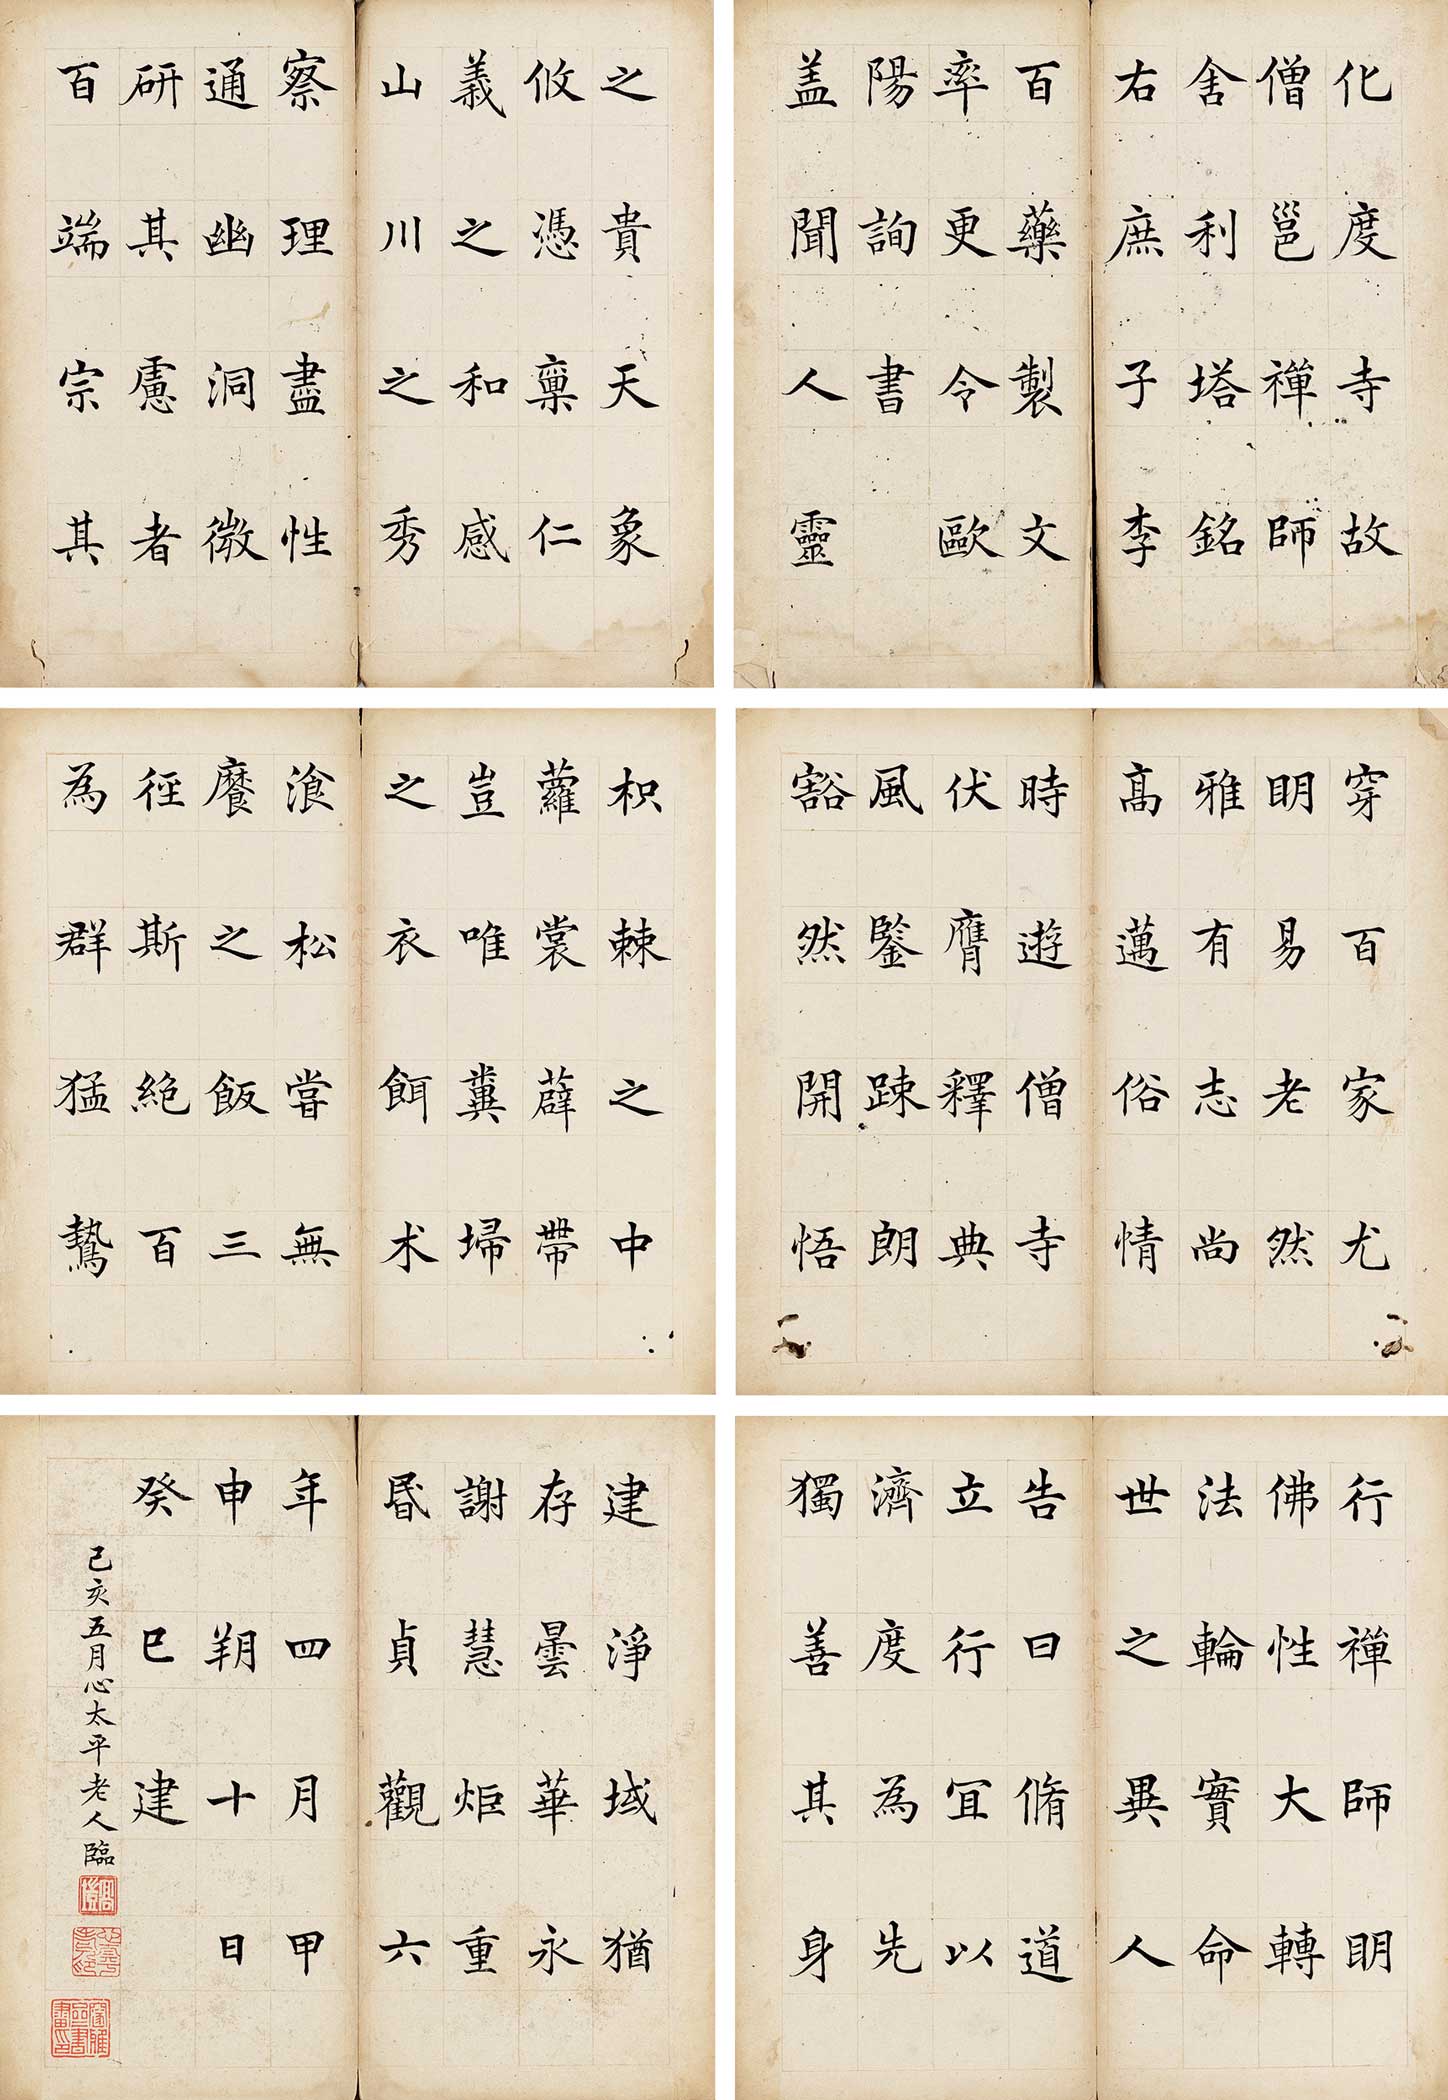 化度寺故
僧邕禪師
舍利塔銘
右庶子李
百藥製文
率更令歐
陽詢書
盖聞人靈
之貴天象
攸憑稟仁
義之和感
山川之秀
察理盡性
通幽洞微
研其慮者
百端宗其
穿百家尤
明易老然
雅有志尚
高邁俗情
時遊僧寺
伏膺釋典
風鑒疎朗
豁然開悟
枳棘之中
蘿裳薜帶
豈唯糞埽
之衣餌朮
飡松嘗無
之飯三
徑斯絕百
為群猛鷙
行禪師明
佛性大轉
法輪實命
世之異人
告曰脩道
立行宜以
濟度為先
獨善其身
建淨域猶
存曇華永
謝慧炬重
昬貞觀六
年四月甲
申朔十日
癸巳建
己亥五月心太平老人臨
高塏